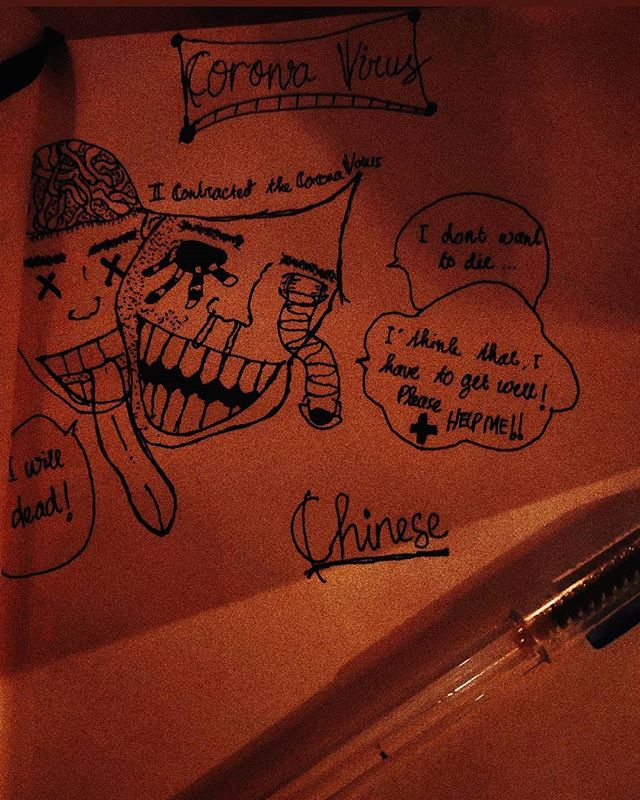 Corona Virus
I Contracted the Corona Virus
I dont want
to die ...
I' think that, I
have to get well!
Please HELP ME!!
I will
dead!
Chinese